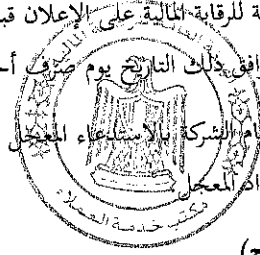 ة للرقابة المالية على الإعلان قبـ
وافق ذلك التاريخ يوم صرف أ
ام الشركة بالاستدعاء المعجل
اد المعجل
مكتب خدمة العملاء
ج)